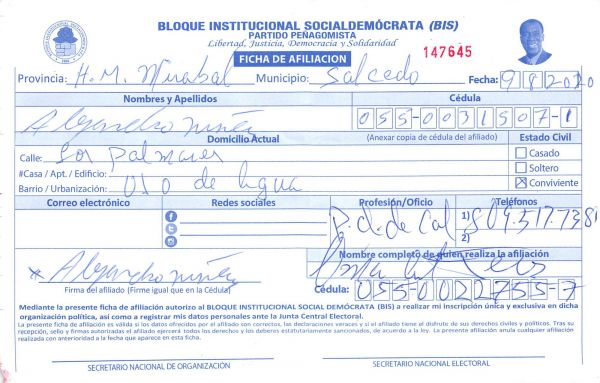 BLOQUE INSTITUCIONAL SOCIALDEMÓCRATA (BIS)
PARTIDO PEÑAGOMISTA
Libertad, Justicia, Democracia y Solidaridad
FICHA DE AFILIACION
147645
Provincia: H. M. Mirabal Municipio: Salcedo Fecha: 9 8 2020
Nombres y Apellidos Cédula
Alejandro Núñez 055-0031507-1
Domicilio Actual (Anexar copia de cédula del afiliado) Estado Civil
Calle: Los Palmares Casado
#Casa / Apt. / Edificio: Soltero
Barrio / Urbanización: Ojo de Agua X Conviviente
Correo electrónico Redes sociales Profesión/Oficio Teléfonos
P. d. de Cal 1) 809.517.738
2)
Nombre completo de quien realiza la afiliación
Alejandro Núñez
Firma del afiliado (Firme igual que en la Cédula) Cédula: 055-0022755-7
Mediante la presente ficha de afiliación autorizo al BLOQUE INSTITUCIONAL SOCIAL DEMÓCRATA (BIS) a realizar mi inscripción única y exclusiva en dicha
organización política, así como a registrar mis datos personales ante la Junta Central Electoral.
La presente ficha de afiliación es válida si los datos ofrecidos por el afiliado son correctos, las declaraciones veraces y si el afiliado tiene el disfrute de sus derechos civiles y políticos. Tras su
recepción, sello y firmas autorizadas el afiliado ejercerá todos los derechos y los deberes estatutariamente sancionados, de acuerdo a la ley. La presente afiliación anula cualquier afiliación
realizada con anterioridad a la fecha que aparece en esta ficha.
SECRETARIO NACIONAL DE ORGANIZACIÓN SECRETARIO NACIONAL ELECTORAL